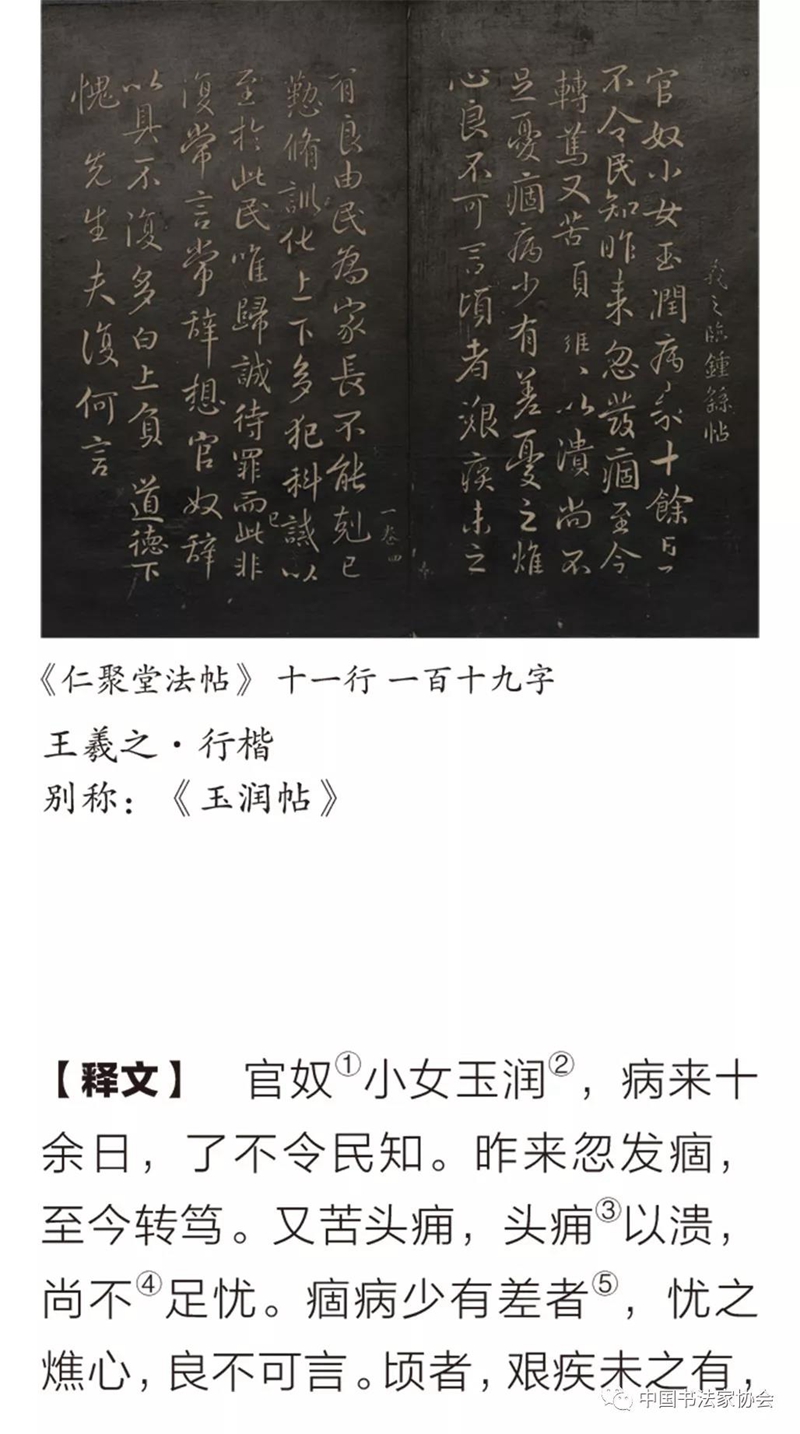 羲之臨鍾繇帖
官奴小女玉潤病来十餘日了
不令民知昨来忽發痼至今
轉篤又苦頭以潰尚不
足憂痼病少有差憂之燋
心良不可言頃者艱疾未之
一卷四
有良由民為家長不能剋己
懃脩訓化上下多犯科誡以
至於此民唯歸誠待罪而此非
復常言常辭想官奴辭
已
以具不復多白上負道德下
愧先生夫復何言
《仁聚堂法帖》 十一行 一百十九字
王羲之·行楷
别称：《玉润帖》
【释文】 官奴①小女玉润②，病来十
余日，了不令民知。昨来忽发痼，
至今转笃。又苦头痈，头痈③以溃，
尚不④足忧。痼病少有差者⑤，忧之
燋心，良不可言。顷者，艰疾未之有，
中国书法家协会